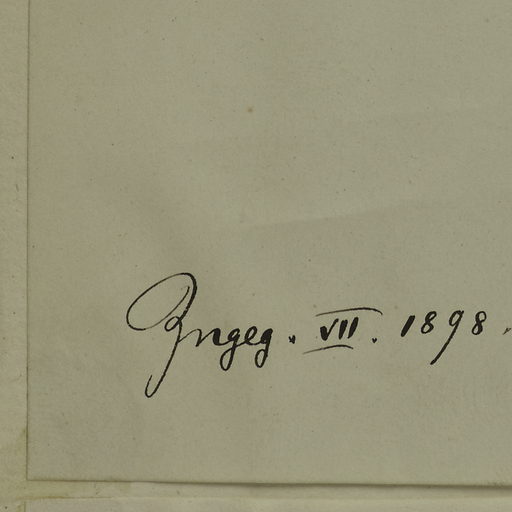 Zngeg. VII. 1898.